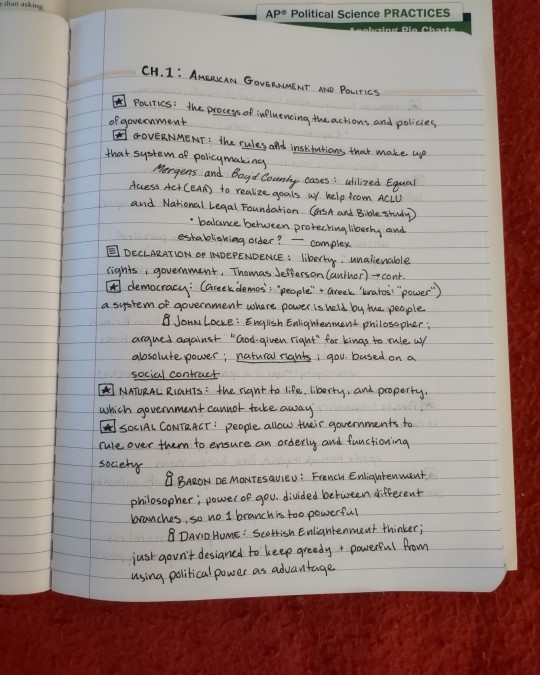 than asking
AP® Political Science PRACTICES
Analyzing Pie Charts
CH.1: AMERICAN GOVERNMENT AND POLITICS
POLITICS: the process of influencing the actions and policies
of government
GOVERNMENT: the rules and institutions that make up
that system of policymaking
Mergens and Boyd County cases: utilized Equal
Access Act (EAA) to realize goals w/ help from ACLU
and National Legal Foundation (GSA and Bible study)
• balance between protecting liberty and
establishing order? — complex
DECLARATION OF INDEPENDENCE: liberty, unalienable
rights, government, Thomas Jefferson (author) → cont.
democracy: (Greek 'demos': "people" + Greek 'kratos': "power")
a system of government where power is held by the people
JOHN LOCKE: English Enlightenment philosopher;
argued against "God-given right" for kings to rule w/
absolute power; natural rights; gov. based on a
social contract
NATURAL RIGHTS: the right to life, liberty, and property,
which government cannot take away
SOCIAL CONTRACT: people allow their governments to
rule over them to ensure an orderly and functioning
society
BARON DE MONTESQUIEU: French Enlightenment
philosopher; power of gov. divided between different
branches, so no 1 branch is too powerful
DAVID HUME: Scottish Enlightenment thinker;
just govn't designed to keep greedy + powerful from
using political power as advantage